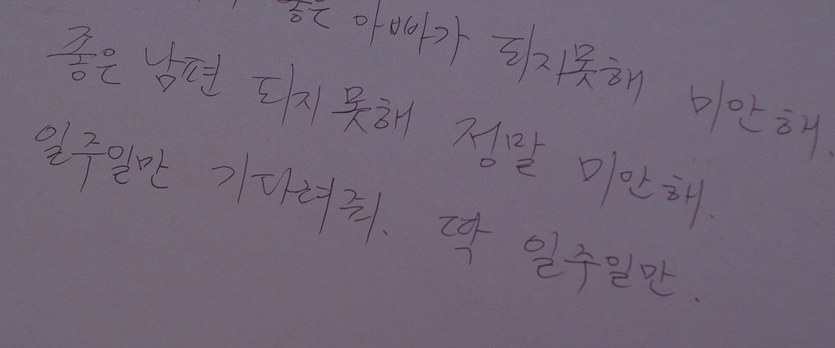 좋은 아빠가 되지못해 미안해.
좋은 남편 되지 못해 정말 미안해.
일주일만 기다려줘. 딱 일주일만.